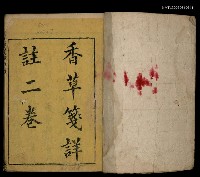 香草箋詳
註二卷